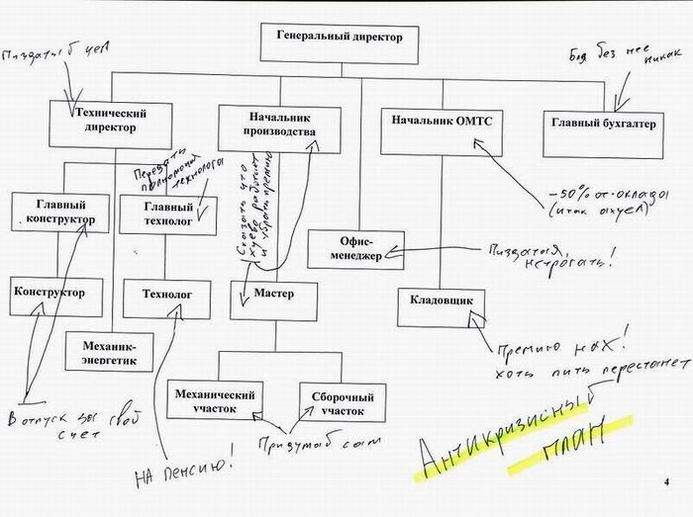 Генеральный директор
Пиздатый чел
Бля без нее
никак
Технический
директор
Начальник
производства
Начальник ОМТС
Главный бухгалтер
Передать
полномочия
технолога
Сказать что
хуево работает
и убрать премию
-50% от оклада
(итак охуел)
Главный
конструктор
Главный
технолог
Офис-
менеджер
Пиздатая,
не трогать!
Конструктор
Технолог
Мастер
Кладовщик
Механик-
энергетик
Премию нах!
хоть пить перестанет
Механический
участок
Сборочный
участок
В отпуск за свой
счет
на пенсию!
Придумай сам
Антикризисный
план
4